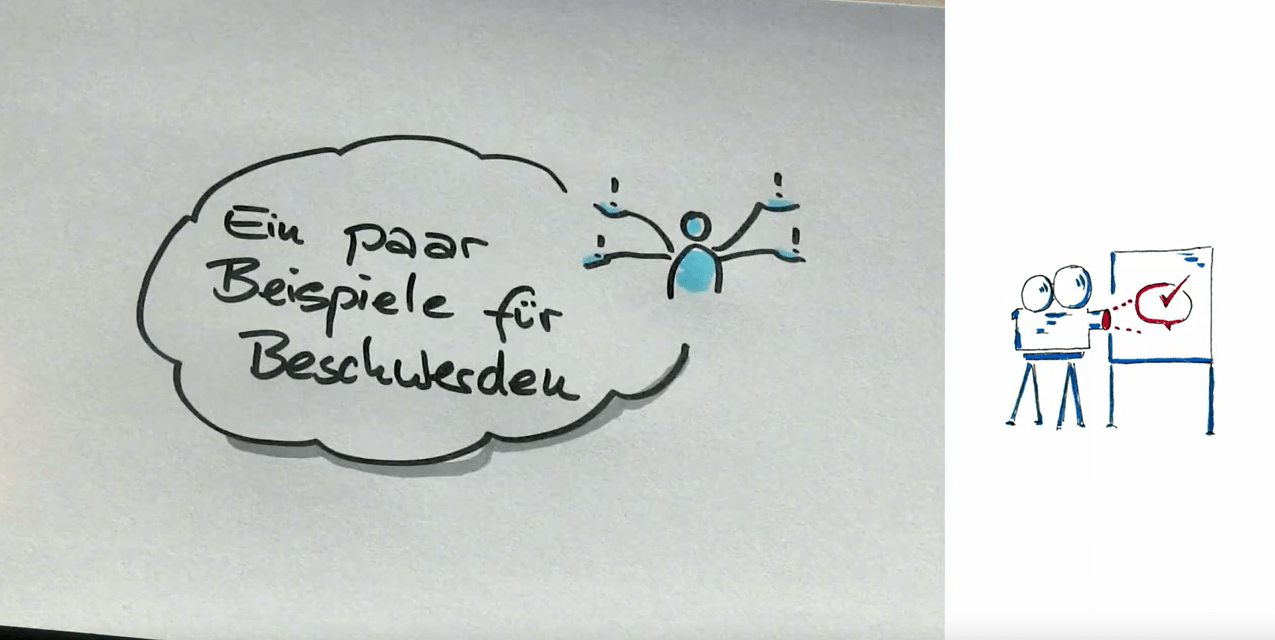 Ein paar
Beispiele für
Beschwerden